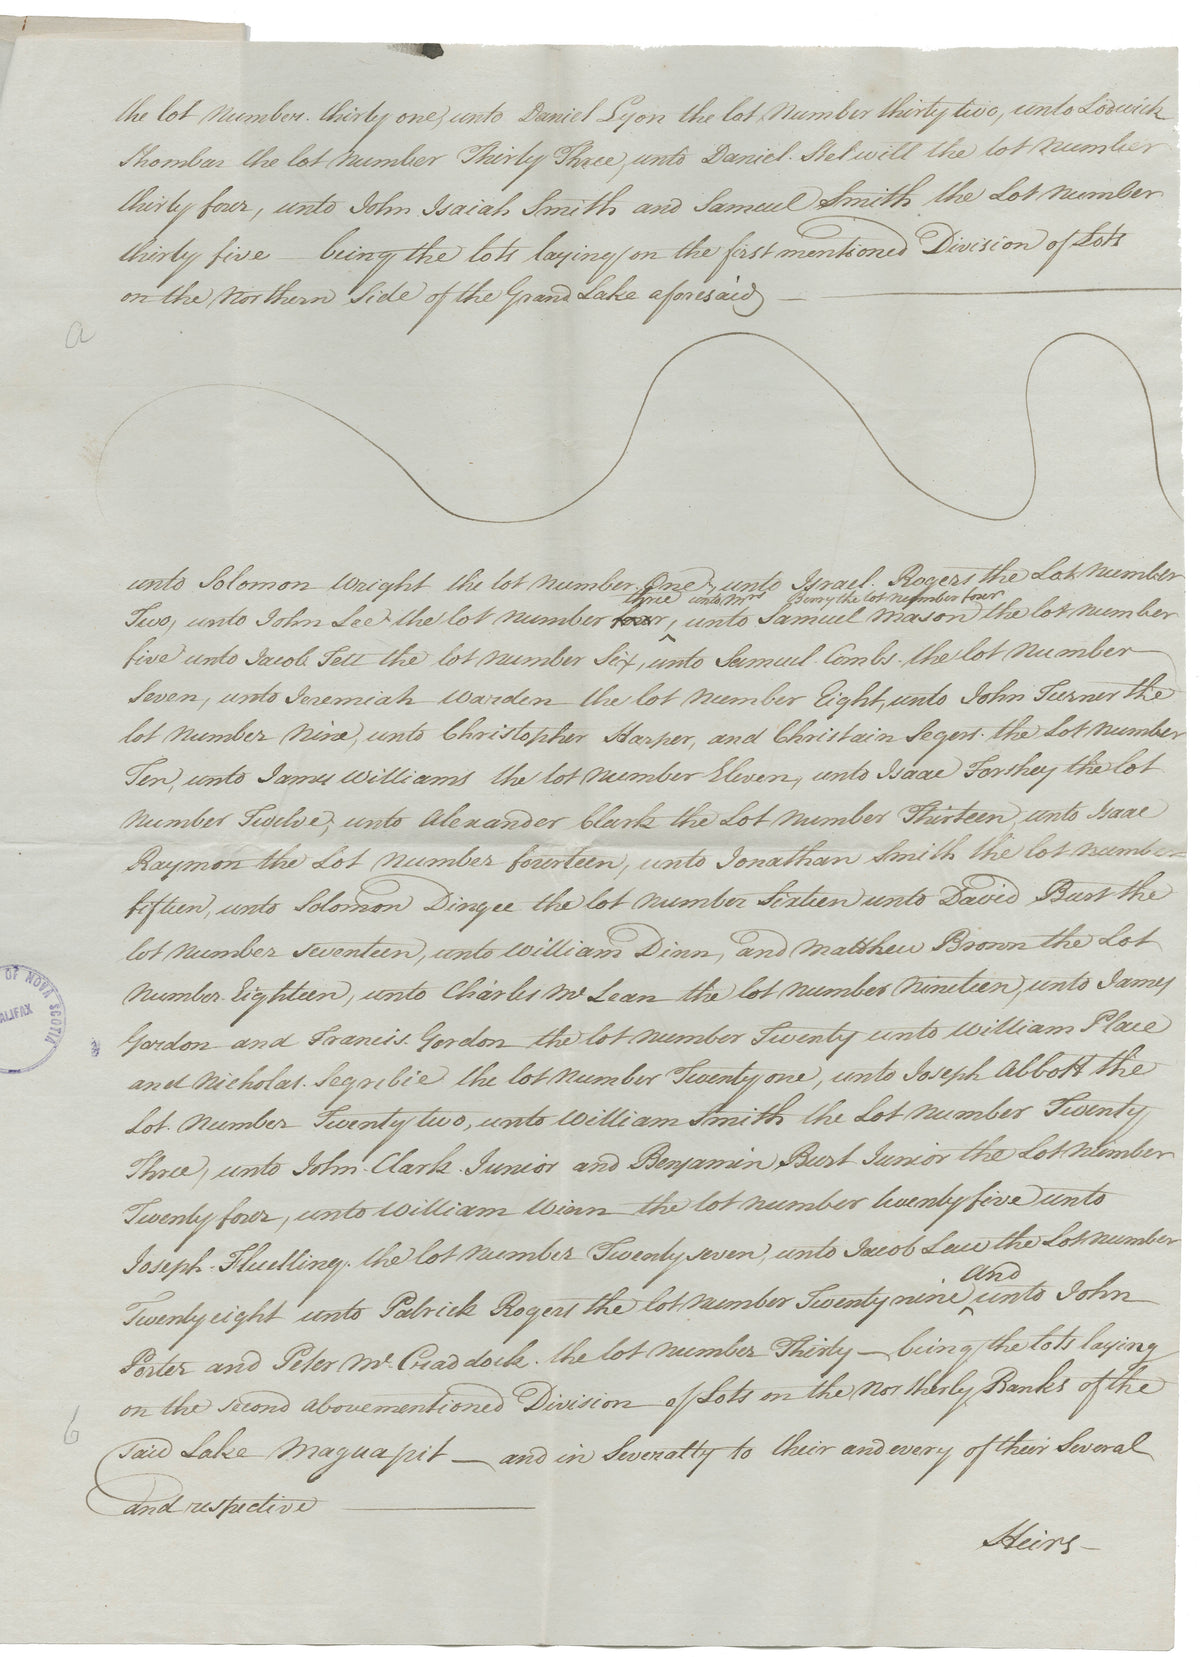 the lot Number thirty one, unto Daniel Lyon the lot Number thirty two, unto Lodwick
Thombar the lot Number Thirty Three, unto Daniel Stelwill the lot Number
thirty four, unto John Isaiah Smith and Samuel Smith the Lot Number
thirty five — being the lots laying on the first mentioned Division of Lots
on the Northern Side of the Grand Lake aforesaid —
a
unto Solomon Wright the lot Number One, unto Israel Rogers the Lot Number
three unto Mrs Berry the lot Number four
Two, unto John Lee the lot Number four, unto Samuel Mason the lot Number
five unto Jacob Tell the lot Number Six, unto Samuel Combs the lot Number
Seven, unto Jeremiah Warden the lot Number Eight, unto John Turner the
lot Number Nine, unto Christopher Harper, and Christain Segers the Lot Number
Ten, unto James Williams the lot Number Eleven, unto Isaac Forshey the lot
Number Twelve, unto Alexander Clark the Lot Number Thirteen, unto Isaac
Raymon the Lot Number fourteen, unto Jonathan Smith the lot Number
fifteen, unto Solomon Dingee the lot Number Sixteen unto David Burt the
lot Number Seventeen, unto William Dinn, and Matthew Brown the Lot
Number Eighteen, unto Charles Mc Lean the lot Number Nineteen, unto James
Gordon and Francis Gordon the lot Number Twenty unto William Place
and Nicholas Segribie the lot Number Twenty one, unto Joseph Abbott the
Lot Number Twenty two, unto William Smith the Lot Number Twenty
Three, unto John Clark Junior and Benjamin Burt Junior the Lot Number
Twenty four, unto William Winn the lot Number twenty five unto
Joseph Fluelling the lot Number Twenty seven, unto Jacob Law the Lot Number
and
Twenty eight unto Patrick Rogers the lot Number Twenty nine unto John
Porter and Peter Mc Craddock the lot Number Thirty — being the lots laying
on the Second abovementioned Division of Lots on the Northerly Banks of the
b
said Lake Maguapit — and in Severalty to their and every of their Several
and respective
Heirs —
OF NOVA SCOTIA
HALIFAX